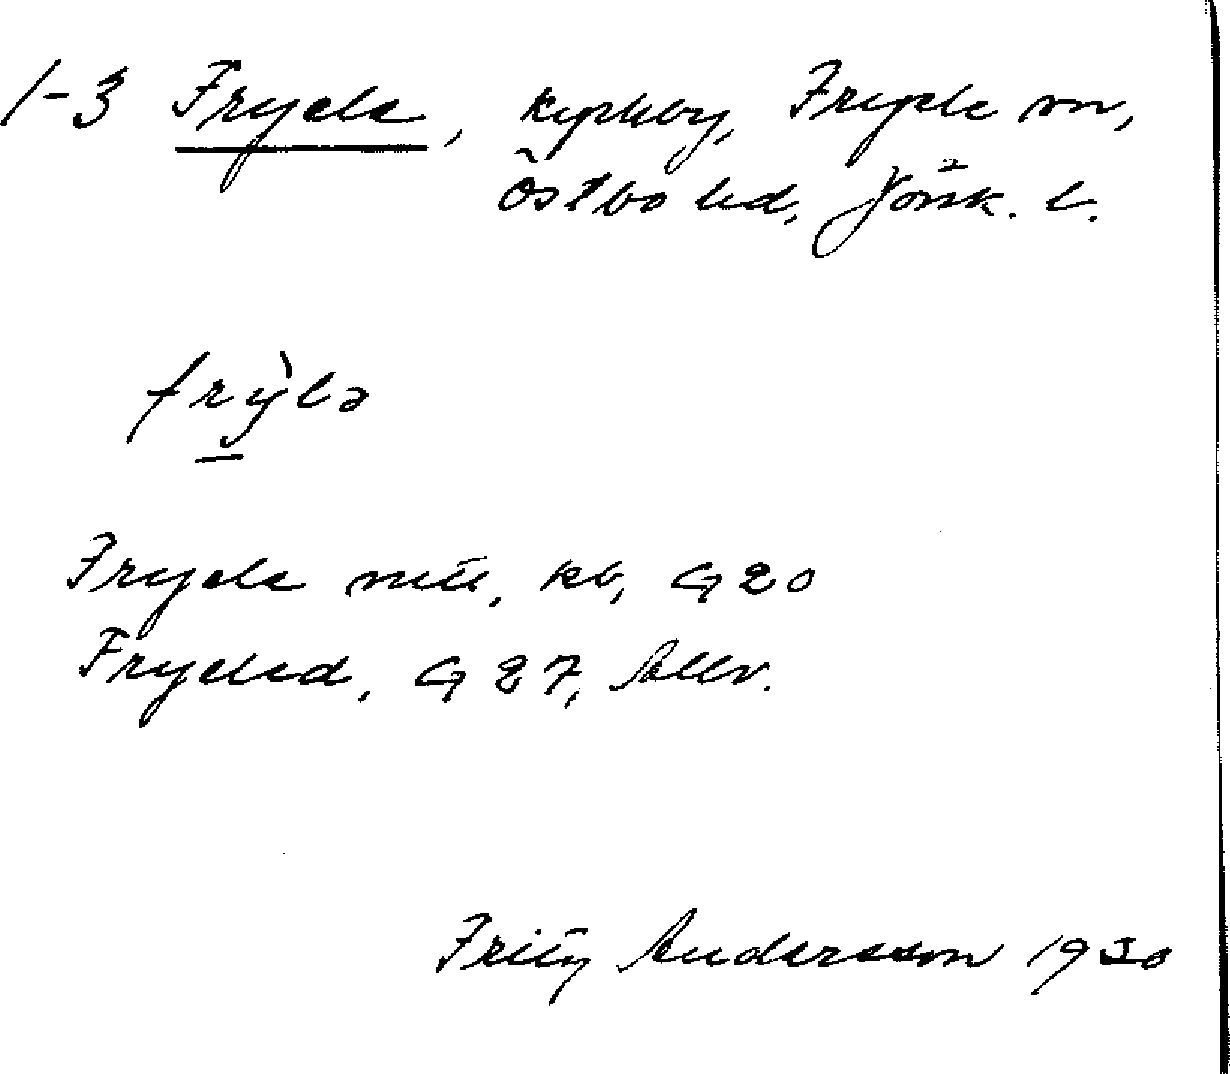 1-3 Fryele, kyrkby, Fryele sn,
Östbo hd, Jönk. l.
frỳlə
Fryele mtl, kb, G 20
Fryeled, G 27, Allv.
Fritz Andersson 1930